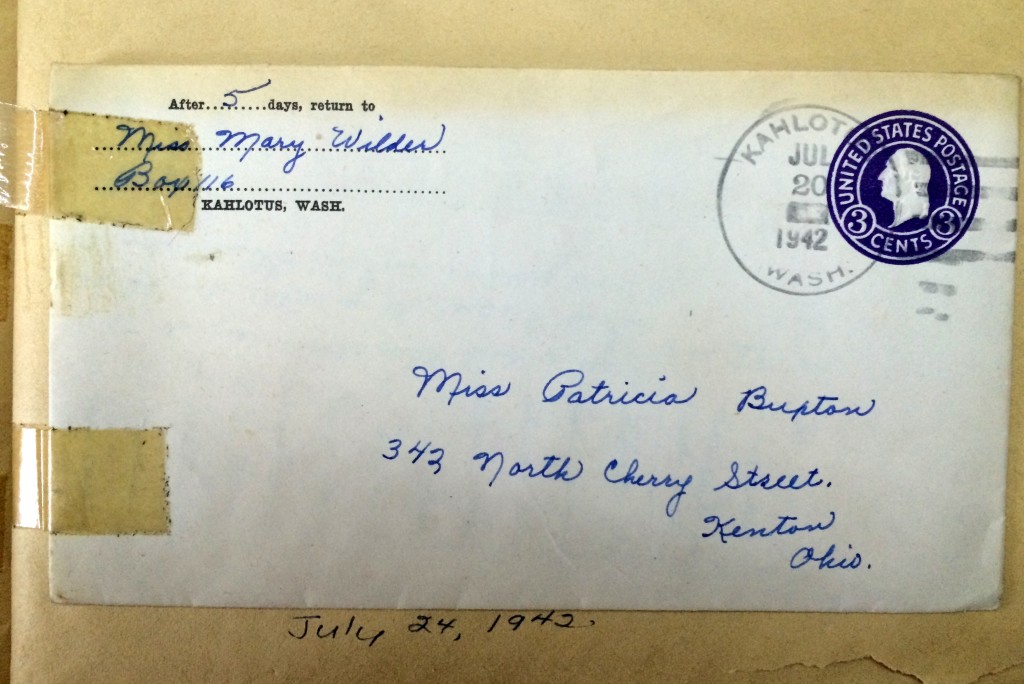 After.....5.....days, return to
Miss Mary Wilder
Box 116
KAHLOTUS, WASH.
KAHLOT
JUL
20
1942
WASH.
UNITED STATES POSTAGE
3 CENTS 3
Miss Patricia
343 North Cherry Street.
Kenton
Ohio.
July 24, 1942.